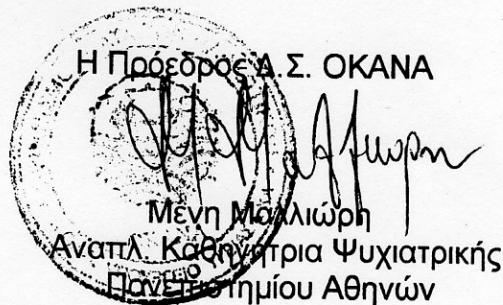 Η Πρόεδρος Δ.Σ. ΟΚΑΝΑ
Μένη Μαλλιώρη
Αναπλ. Καθηγήτρια Ψυχιατρικής
Πανεπιστημίου Αθηνών